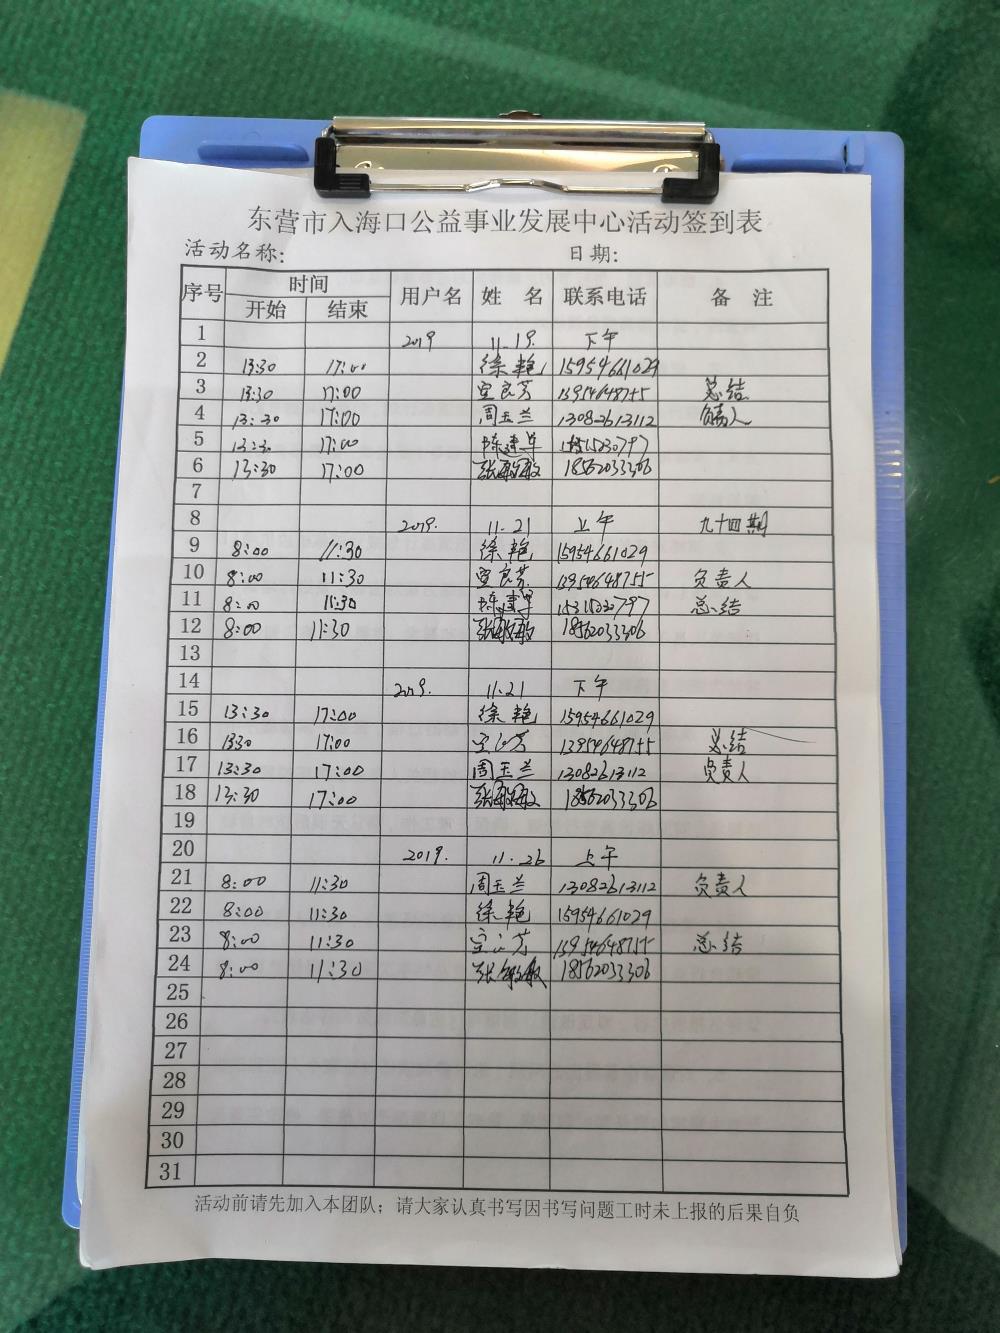 东营市入海口公益事业发展中心活动签到表
活动名称: 日期:
序号 时间 用户名 姓 名 联系电话 备 注
开始 结束
1 2019 11.19. 下午
2 13:30 17:00 徐艳 15954661029
3 13:30 17:00 芳 13954648755 总结
4 13:30 17:00 周玉兰 13082613112 负责人
5 13:30 17:00 陈建军
6 13:30 17:00 张敏敏 18562033306
7
8 2019. 11.21 上午 九十四期
9 8:00 11:30 徐艳 15954661029
10 8:00 11:30 芳 13954648755 负责人
11 8:00 11:30 陈建军 总结
12 8:00 11:30 张敏敏 18562033306
13
14 2019. 11.21 下午
15 13:30 17:00 徐艳 15954661029
16 1330 17:00 芳 13954648755 总结
17 13:30 17:00 周玉兰 13082613112 负责人
18 13:30 17:00 张敏敏 18562033306
19
20 2019. 11.26 上午
21 8:00 11:30 周玉兰 13082613112 负责人
22 8:00 11:30 徐艳 15954661029
23 8:00 11:30 芳 13954648755 总结
24 8:00 11:30 张敏敏 18562033306
25
26
27
28
29
30
31
活动前请先加入本团队；请大家认真书写因书写问题工时未上报的后果自负